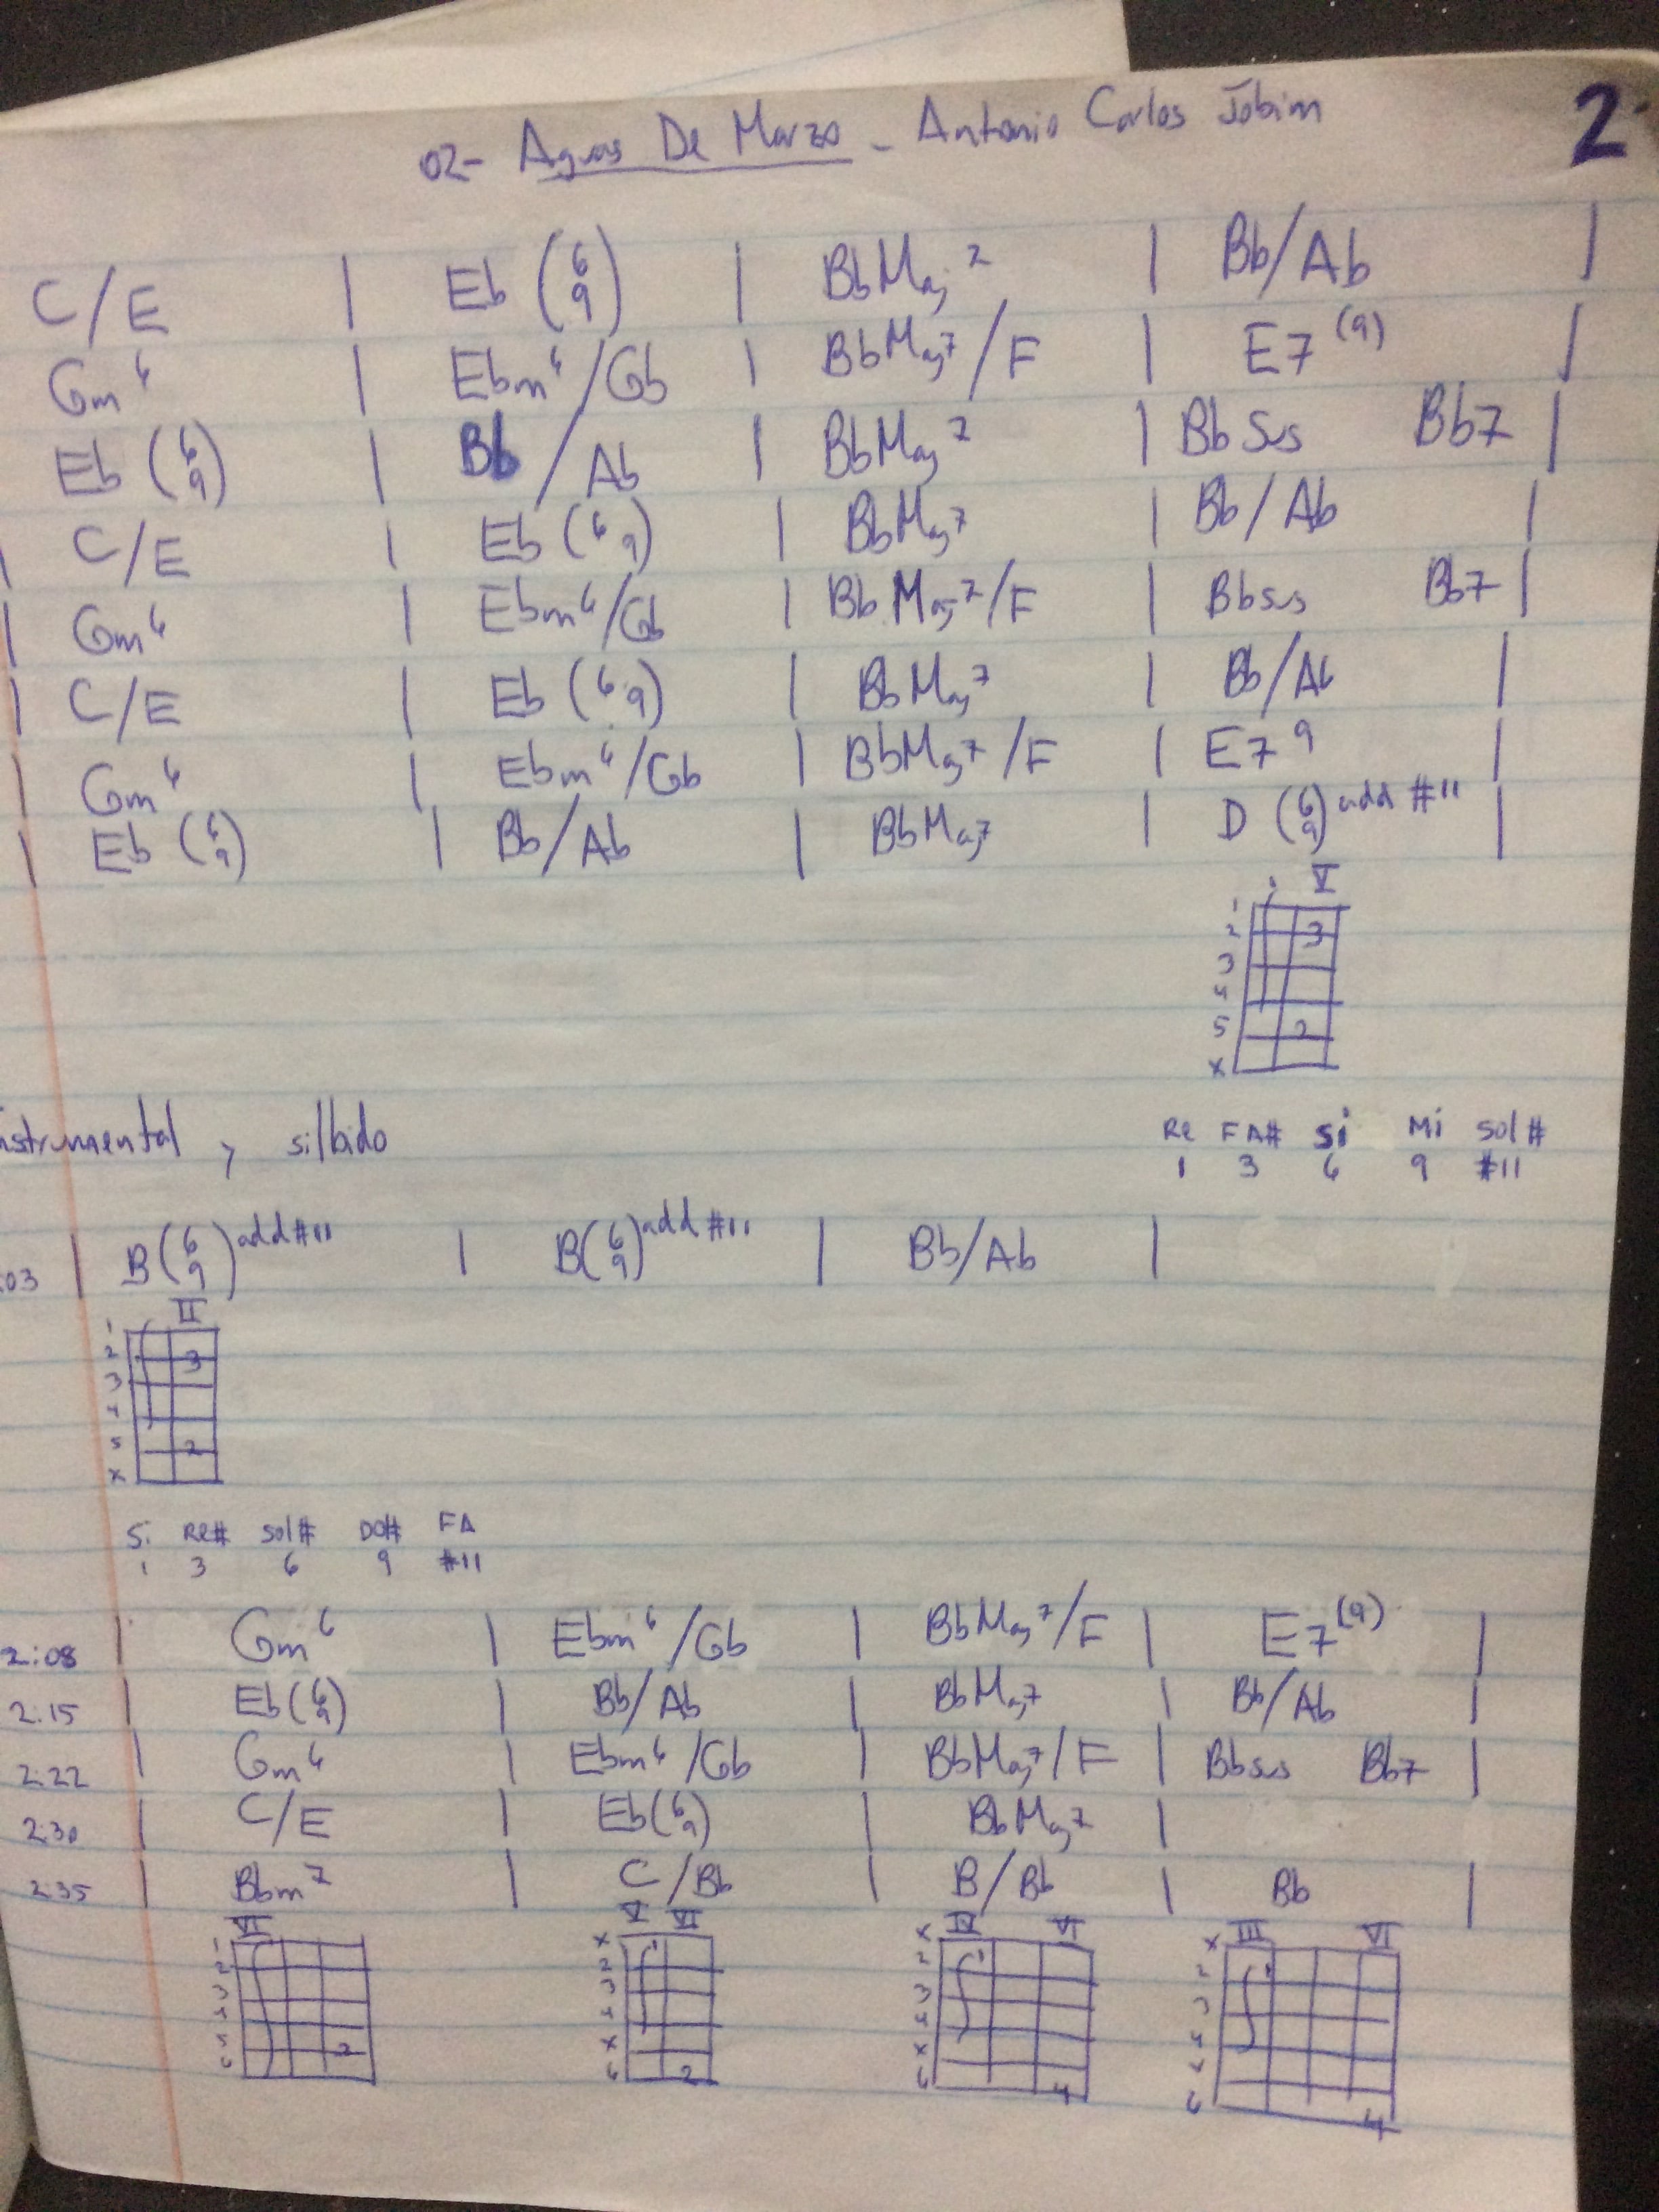 02- Aguas De Marzo - Antonio Carlos Jobim 2
C/E | Eb (6 9) | BbMaj7 | Bb/Ab |
Gm6 | Ebm6/Gb | BbMaj7/F | E7(9) |
Eb (6 9) | Bb/Ab | BbMaj7 | BbSus Bb7 |
| C/E | Eb (6 9) | BbMaj7 | Bb/Ab |
| Gm6 | Ebm6/Gb | BbMaj7/F | Bbsus Bb7 |
| C/E | Eb (6 9) | BbMaj7 | Bb/Ab |
| Gm6 | Ebm6/Gb | BbMaj7/F | E7 9 |
| Eb (6 9) | Bb/Ab | BbMaj7 | D (6 9) add #11 |
V
1
2 3
3
4
5 2
x
nstrumental y silbido
Re FA# Si Mi Sol#
1 3 6 9 #11
:03 | B (6 9) add #11 | B (6 9) add #11 | Bb/Ab |
II
1
2 3
3
4
5 2
x
Si Re# Sol# DO# FA
1 3 6 9 #11
2:08 | Gm6 | Ebm6/Gb | BbMaj7/F | E7(9) |
2:15 | Eb (6 9) | Bb/Ab | BbMaj7 | Bb/Ab |
2:22 | Gm6 | Ebm6/Gb | BbMaj7/F | Bbsus Bb7 |
2:30 | C/E | Eb (6 9) | BbMaj7 |
2:35 | Bbm7 | C/Bb | B/Bb | Bb |
VI V VI IV VI III VI
1 x 1 x 1 x 1
2 2 2 2
3 3 3 3
4 4 4 4
5 2 x x x
6 6 2 6 4 6 4